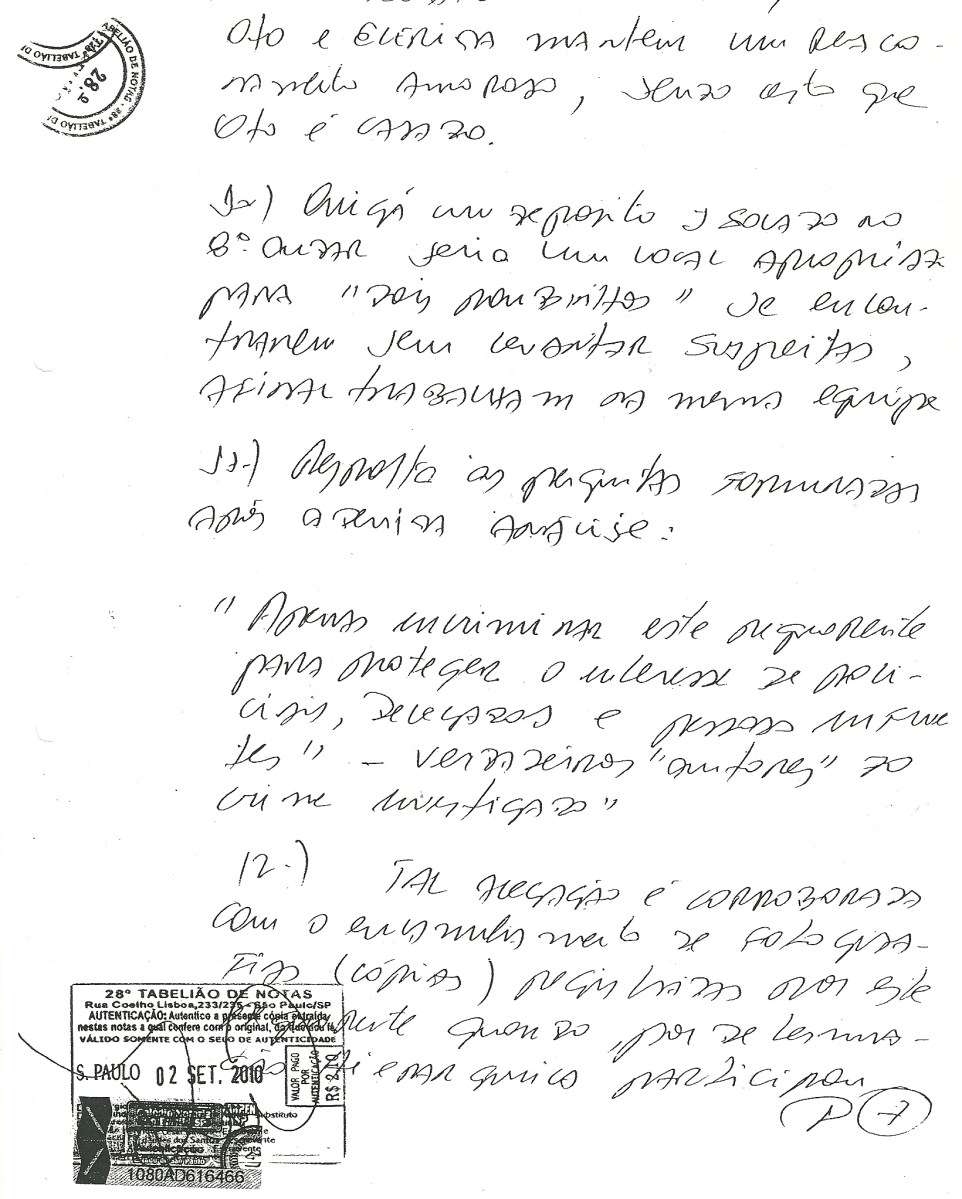 Oto e mantem um
amoroso, senzo certo que
Oto é casazo.
10-) Quiçá um zeposito isolazo no
8º anzar seria um local apropriazo
para "zois pombinhos" se encon-
trarem sem levantar suspeitas,
afinal trabalham na mesma equipe
11-) Resposta às perguntas formulazas
após a análise:
"Apenas incriminar este requerente
para proteger o interesse ze poli-
ciais, zelegazos e pessoas influe
tes" – verzazeiros "autores" zo
crime investigazo"
12-) Tal alegação é corroboraza
com o encaminhamento ze fotogra-
fias (cópias) registrazas por este
quanzo, por zetermina-
participou
P 7
28º TABELIÃO DE NOTAS
Rua Coelho Lisboa,233/235 - São Paulo/SP
AUTENTICAÇÃO: Autentico a presente cópia extraída
nestas notas a qual confere com o original, da que dou fé.
VÁLIDO SOMENTE COM O SELO DE AUTENTICIDADE
S. PAULO 02 SET. 2010
VALOR PAGO
POR
AUTENTICAÇÃO
R$ 2,10
1080AD616466
TABELIÃO DE NOTAS - 28º TABELIÃO DE
28.º